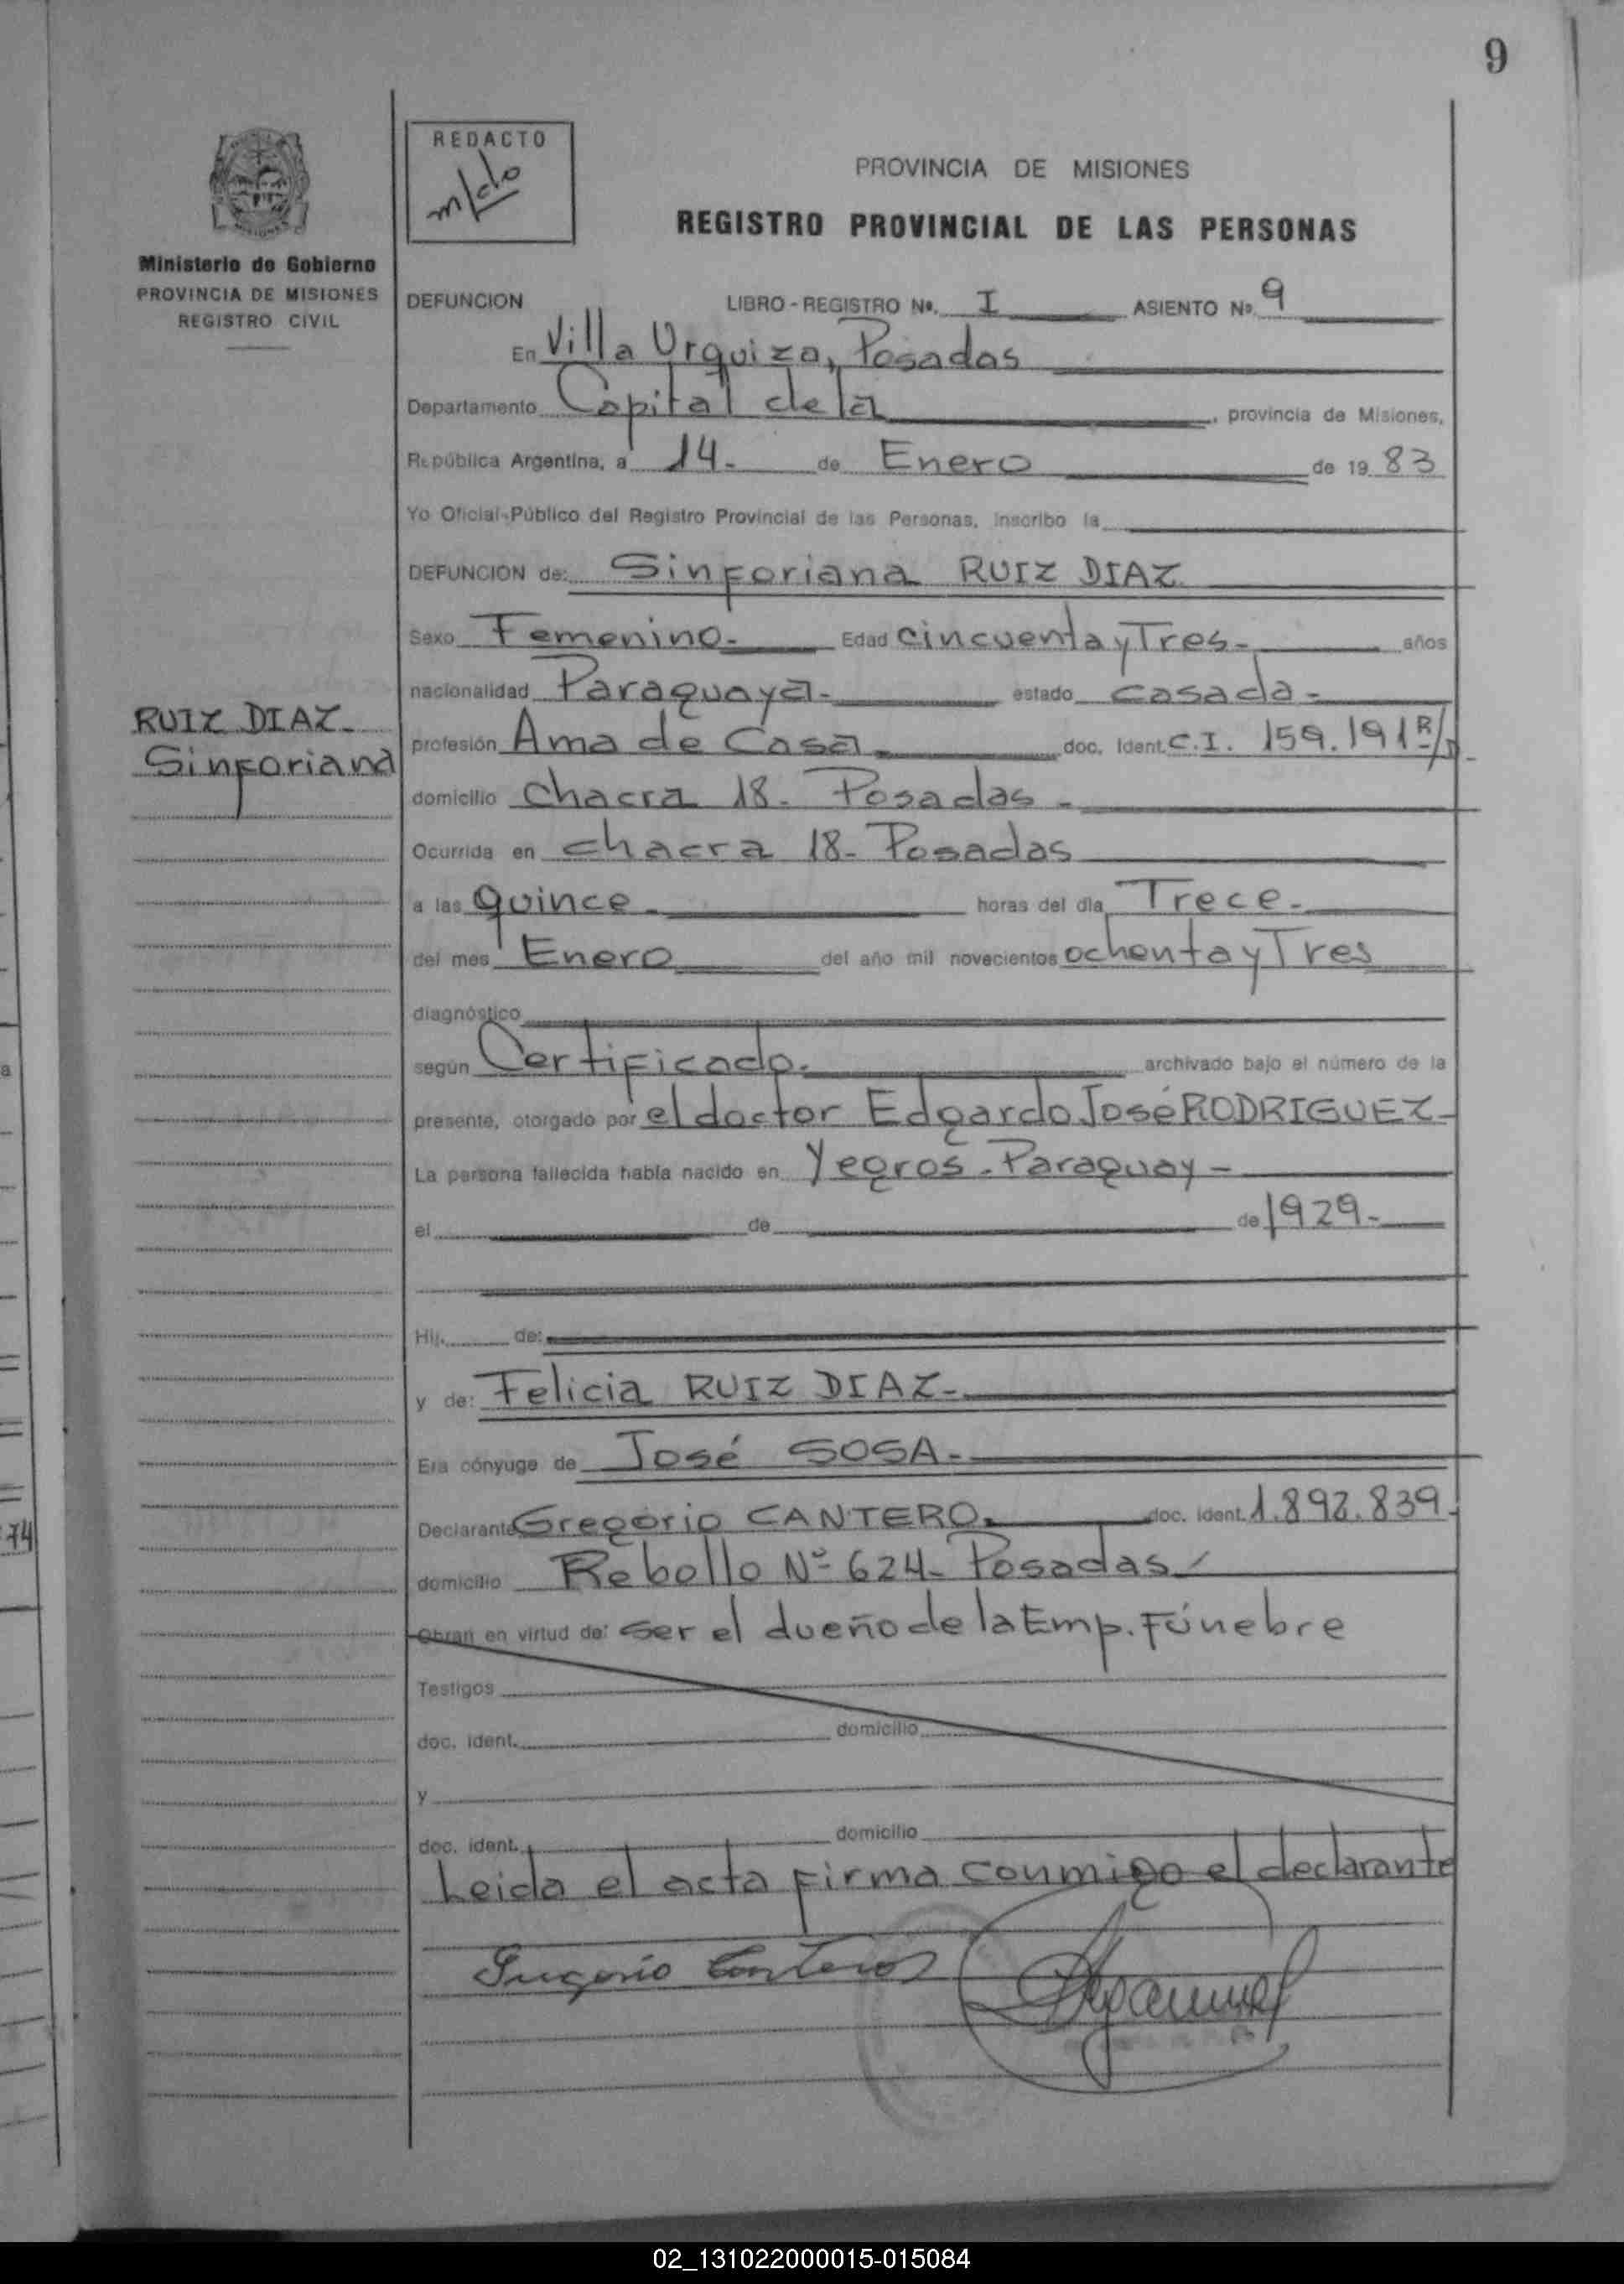 9
REDACTO
PROVINCIA DE MISIONES
REGISTRO PROVINCIAL DE LAS PERSONAS
Ministerio de Gobierno
PROVINCIA DE MISIONES
REGISTRO CIVIL
DEFUNCION LIBRO - REGISTRO Nº. I ASIENTO Nº 9
En Villa Urquiza, Posadas
Departamento Capital de la , provincia de Misiones,
República Argentina, a 14. de Enero de 19 83
Yo Oficial Público del Registro Provincial de las Personas, inscribo la
DEFUNCION de: Sinforiana RUIZ DIAZ
Sexo Femenino.- Edad cincuenta y Tres.- años
nacionalidad Paraguaya.- estado casada.-
RUIZ DIAZ.
Sinforiana
profesión Ama de Casa. doc. Ident. C.I. 159.191
domicilio Chacra 18. Posadas.-
Ocurrida en chacra 18. Posadas
a las quince. horas del día Trece.
del mes Enero del año mil novecientos ochenta y Tres
diagnóstico
según Certificado. archivado bajo el número de la
presente, otorgado por el doctor Edgardo José RODRIGUEZ
La persona fallecida había nacido en Yegros. Paraguay -
el de de 1929.-
Hij de:
y de: Felicia RUIZ DIAZ.
Era cónyuge de José SOSA.-
Declarante Gregorio CANTERO. doc. ident. 1.892.839
74
domicilio Rebollo Nº 624. Posadas
Obran en virtud de: ser el dueño de la Emp. Fúnebre
Testigos
doc. ident. domicilio
y
doc. ident. domicilio
Leida el acta firma conmigo el declarante
02_131022000015-015084